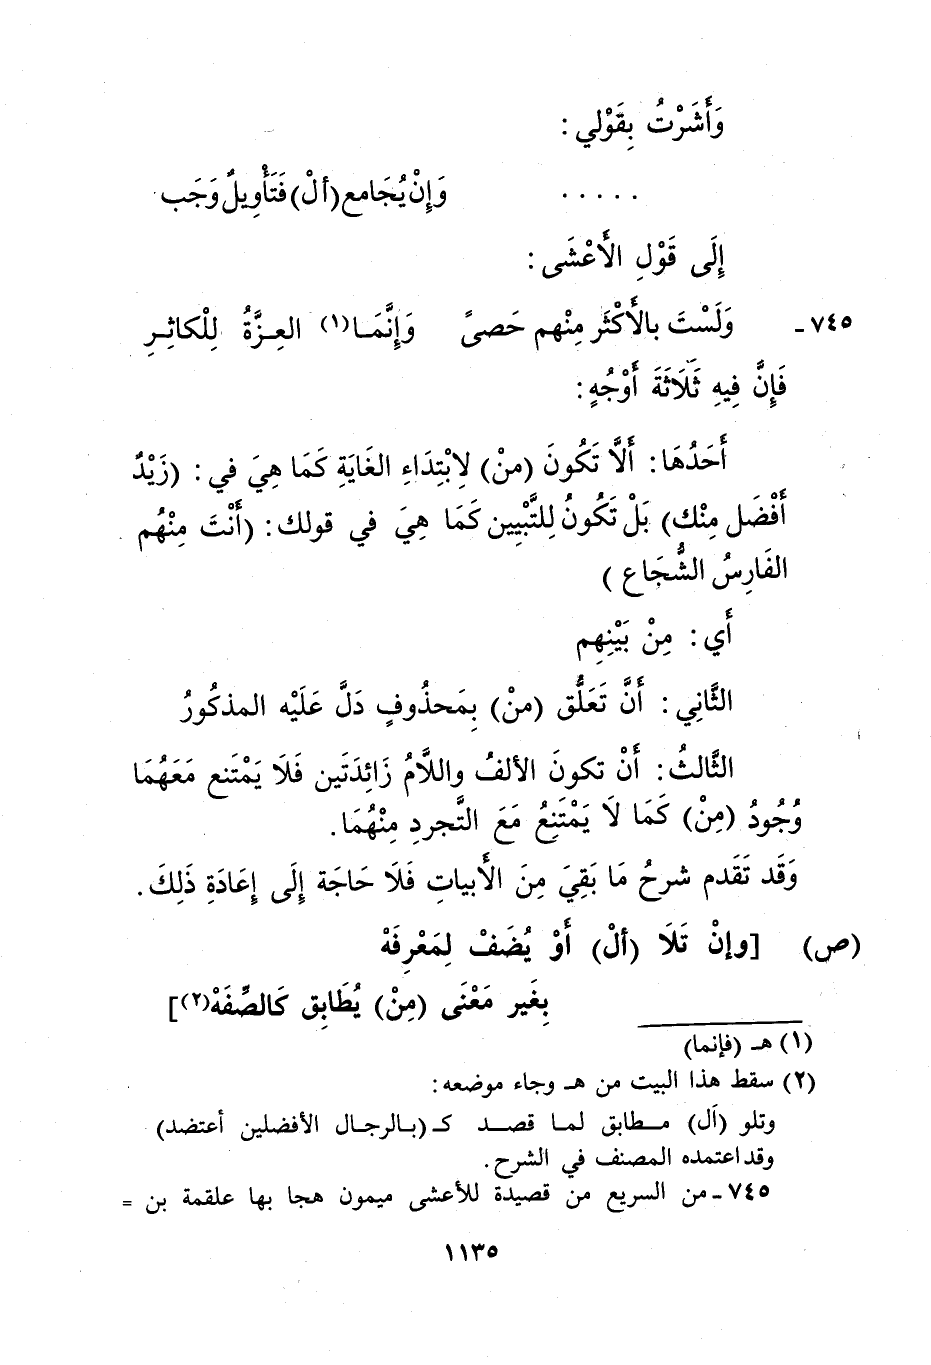 وَأَشَرْتُ بِقَوْلي :
. . . . . وَإِنْ يُجَامع (ألْ) فَتَأْوِيلٌ وَجَب
إِلَى قَوْلِ الأَعْشَى :
٧٤٥ـ وَلَسْتَ بالأَكْثَر مِنْهم حَصىً وَإِنَّمَـا(١) العِـزَّةُ لِلْكاثِـرِ
فَإِنَّ فِيهِ ثَلَاثَةَ أَوْجُهٍ :
أَحَدُهَا : أَلَّا تَكُونَ (منْ) لِابْتِدَاءِ الغَايَةِ كَمَا هِيَ في : (زَيْدٌ
أَفْضَل مِنْك) بَلْ تَكُونُ لِلتَّبْيِين كَمَا هِيَ في قولك : (أَنْتَ مِنْهُم
الفَارِسُ الشُّجَاع )
أَي : مِنْ بَيْنِهِم
الثَّانِي : أَنَّ تَعَلُّق (منْ) بِمَحذُوفٍ دَلَّ عَلَيْه المذكُورُ
الثَّالثُ : أَنْ تكونَ الألفُ واللَّامُ زَائِدَتَين فَلَا يَمْتَنع مَعَهُمَا
وُجُودُ (مِنْ) كَمَا لَا يَمْتَنِعُ مَعَ التَّجردِ مِنْهُمَا .
وَقَد تَقَدم شرحُ مَا بَقِيَ مِنَ الأَبياتِ فَلَا حَاجَة إِلَى إِعَادَةِ ذَلِكَ .
(ص) [وإنْ تَلَا (ألْ) أَوْ يُضَفْ لِمَعْرِفَهْ
بِغَير مَعْنَى (مِنْ) يُطَابِق كَالصِّفَهْ(٢)]
(١) هـ (فإنما)
(٢) سقط هذا البيت من هـ وجاء موضعه :
وتلو (اَل) مـطابق لمـا قصـد كـ (بـالرجـال الأفضلين أعتضد)
وقد اعتمده المصنف في الشرح .
٧٤٥ ـ من السريع من قصيدة للأعشى ميمون هجا بها علقمة بن =
١١٣٥